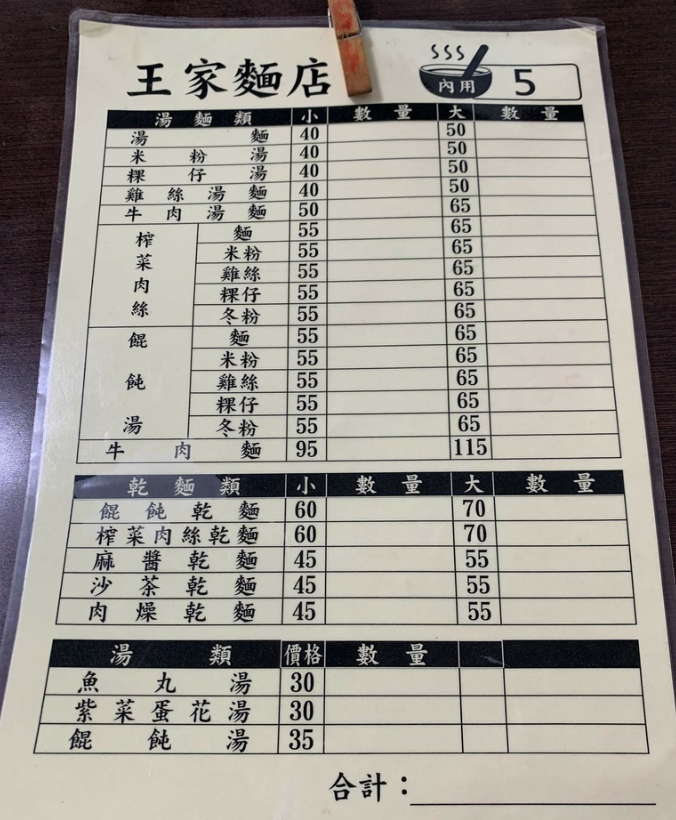 王家麵店 內用 5
湯麵類 小 數量 大 數量
湯麵 40 50
米粉湯 40 50
粿仔湯 40 50
雞絲湯麵 40 50
牛肉湯麵 50 65
榨菜肉絲 麵 55 65
米粉 55 65
雞絲 55 65
粿仔 55 65
冬粉 55 65
餛飩湯 麵 55 65
米粉 55 65
雞絲 55 65
粿仔 55 65
冬粉 55 65
牛肉麵 95 115
乾麵類 小 數量 大 數量
餛飩乾麵 60 70
榨菜肉絲乾麵 60 70
麻醬乾麵 45 55
沙茶乾麵 45 55
肉燥乾麵 45 55
湯類 價格 數量
魚丸湯 30
紫菜蛋花湯 30
餛飩湯 35
合計：